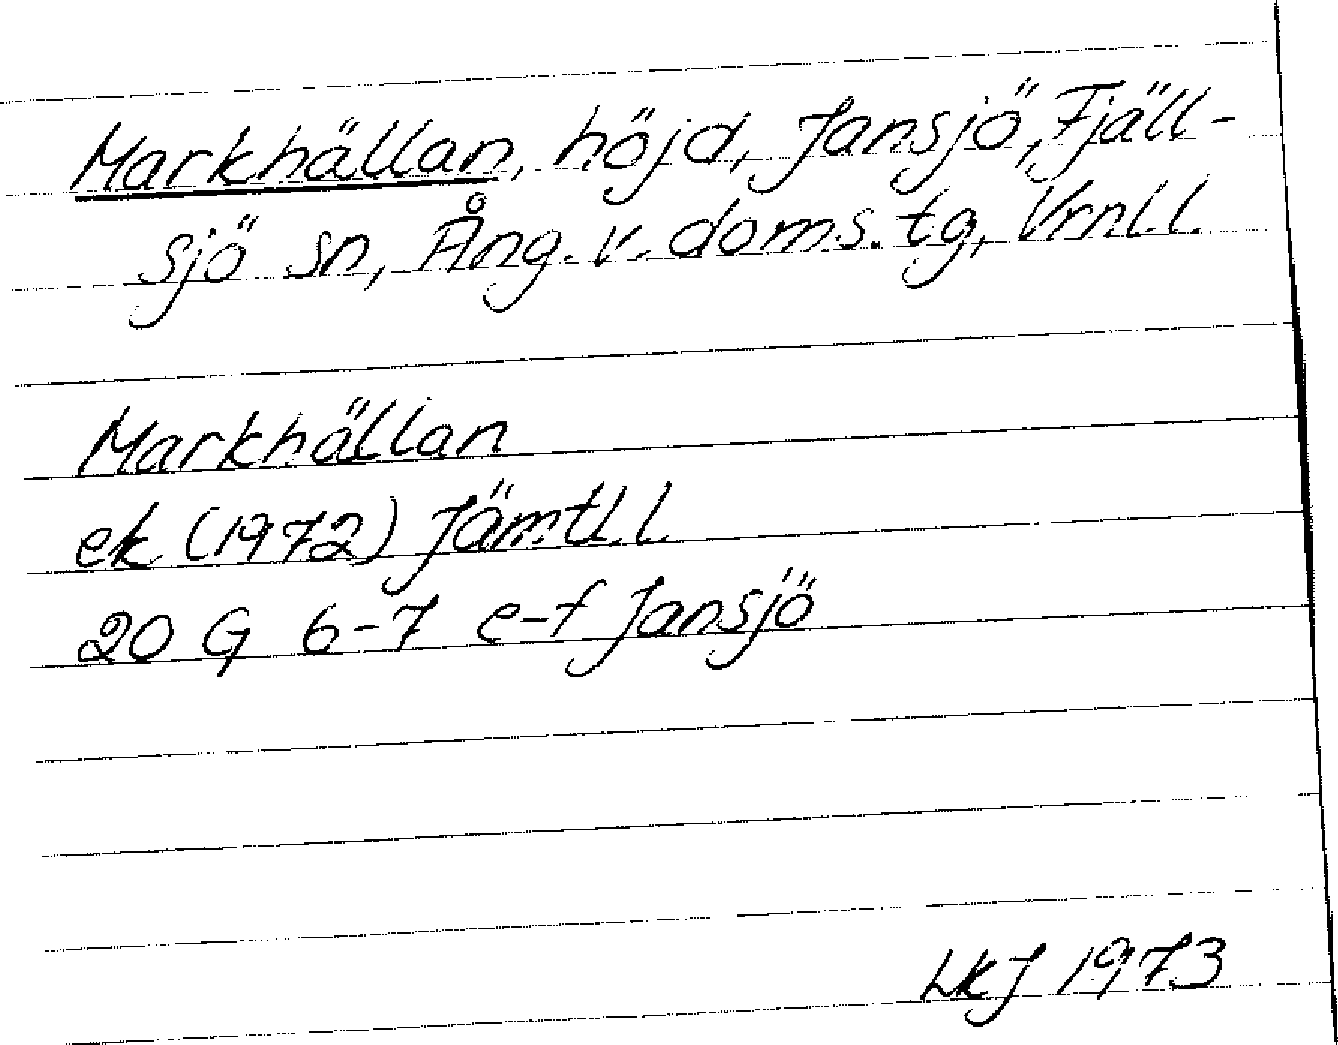 Markhällan, höjd, Jansjö, Fjäll-
sjö sn, Ång. v. doms. tg, Vrnl.l.
Markhällan
ek (1972) Jämtl.l.
20 G 6-7 e-f Jansjö
LkJ 1973